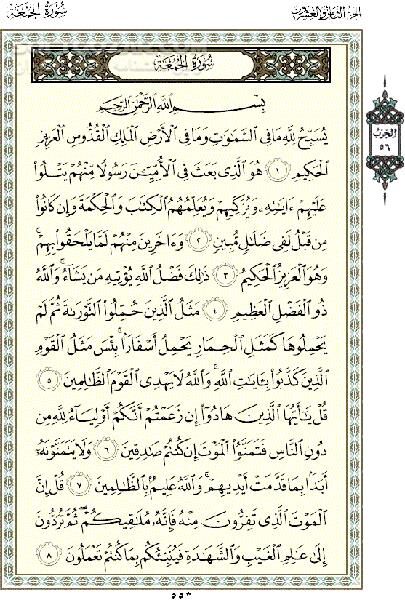 الجزء الثامن والعشرون
سُورَةُ الجُمُعَةِ
سُورَةُ الجُمُعَةِ
بِسْمِ اللَّهِ الرَّحْمَٰنِ الرَّحِيمِ
يُسَبِّحُ لِلَّهِ مَا فِي السَّمَٰوَٰتِ وَمَا فِي الْأَرْضِ الْمَلِكِ الْقُدُّوسِ الْعَزِيزِ
الْحَكِيمِ ١ هُوَ الَّذِي بَعَثَ فِي الْأُمِّيِّينَ رَسُولًا مِّنْهُمْ يَتْلُوا
عَلَيْهِمْ ءَايَٰتِهِ وَيُزَكِّيهِمْ وَيُعَلِّمُهُمُ الْكِتَٰبَ وَالْحِكْمَةَ وَإِن كَانُوا
مِن قَبْلُ لَفِي ضَلَٰلٍ مُّبِينٍ ٢ وَءَاخَرِينَ مِنْهُمْ لَمَّا يَلْحَقُوا بِهِمْ
وَهُوَ الْعَزِيزُ الْحَكِيمُ ٣ ذَٰلِكَ فَضْلُ اللَّهِ يُؤْتِيهِ مَن يَشَاءُ وَاللَّهُ
ذُو الْفَضْلِ الْعَظِيمِ ٤ مَثَلُ الَّذِينَ حُمِّلُوا التَّوْرَىٰةَ ثُمَّ لَمْ
يَحْمِلُوهَا كَمَثَلِ الْحِمَارِ يَحْمِلُ أَسْفَارًا بِئْسَ مَثَلُ الْقَوْمِ
الَّذِينَ كَذَّبُوا بِـَٔايَٰتِ اللَّهِ وَاللَّهُ لَا يَهْدِي الْقَوْمَ الظَّٰلِمِينَ ٥
قُلْ يَٰأَيُّهَا الَّذِينَ هَادُوا إِن زَعَمْتُمْ أَنَّكُمْ أَوْلِيَاءُ لِلَّهِ مِن
دُونِ النَّاسِ فَتَمَنَّوُا الْمَوْتَ إِن كُنتُمْ صَٰدِقِينَ ٦ وَلَا يَتَمَنَّوْنَهُ
أَبَدًا بِمَا قَدَّمَتْ أَيْدِيهِمْ وَاللَّهُ عَلِيمٌ بِالظَّٰلِمِينَ ٧ قُلْ إِنَّ
الْمَوْتَ الَّذِي تَفِرُّونَ مِنْهُ فَإِنَّهُ مُلَٰقِيكُمْ ثُمَّ تُرَدُّونَ
إِلَىٰ عَٰلِمِ الْغَيْبِ وَالشَّهَٰدَةِ فَيُنَبِّئُكُم بِمَا كُنتُمْ تَعْمَلُونَ ٨
الحزب
٥٦
٥٥٣